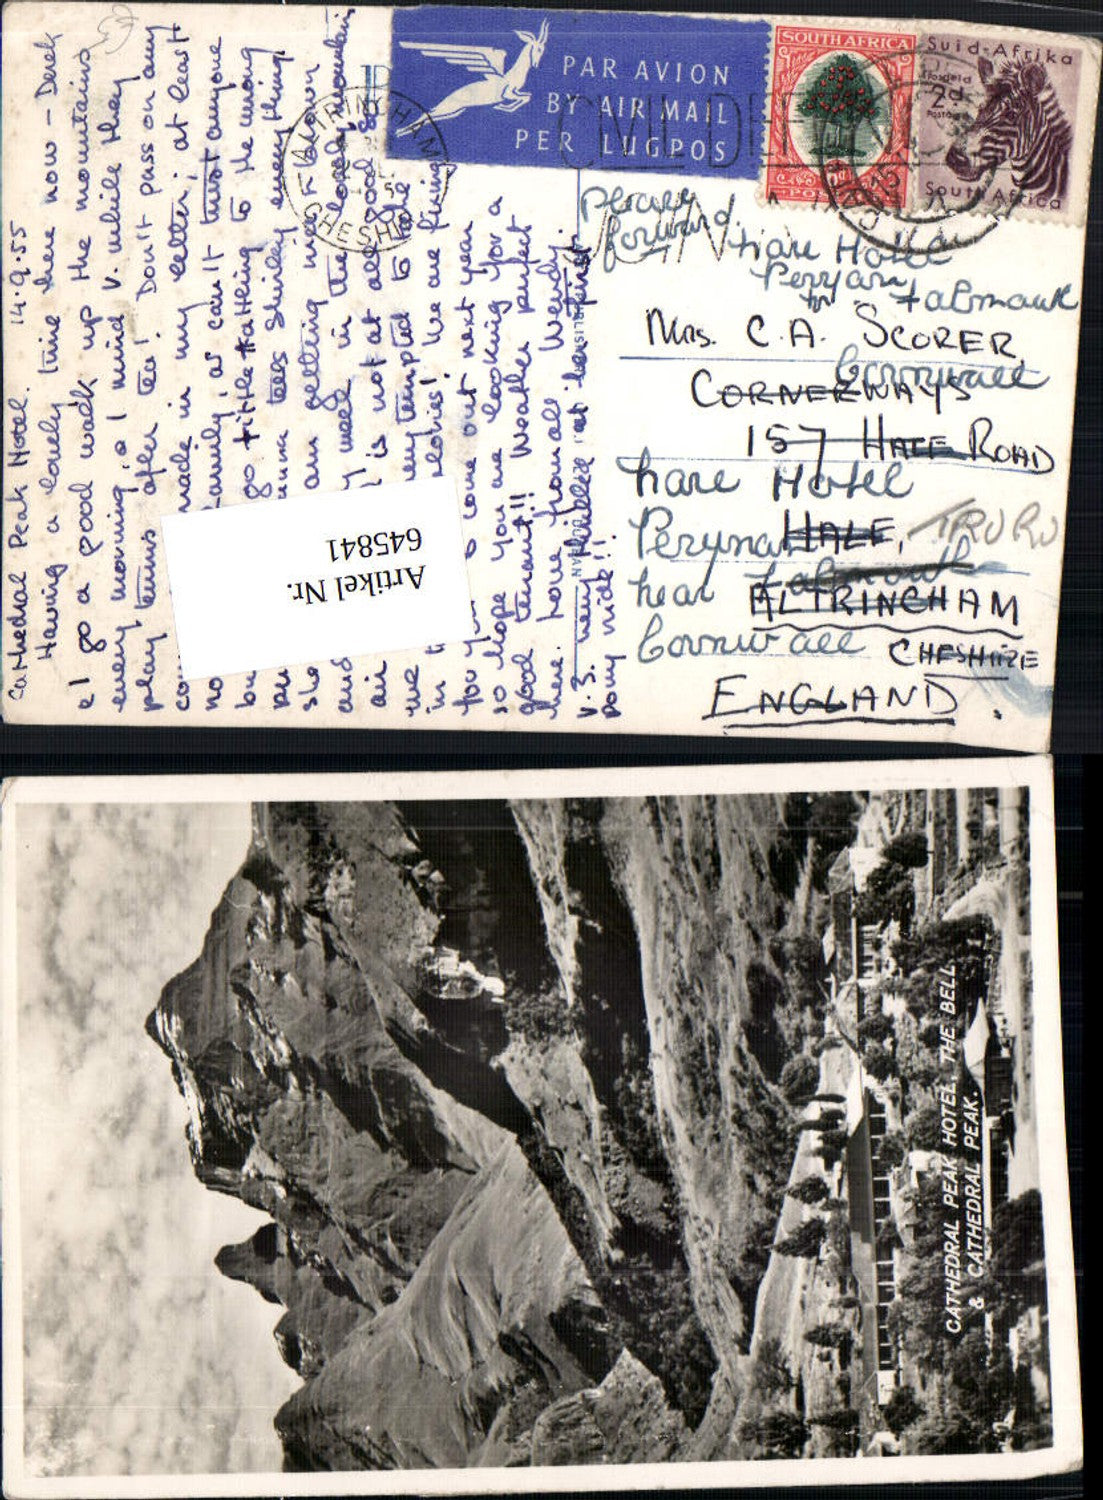 Cathedral Peak Hotel. 14.9.55
Having a lovely time here now - Derek
& I go a good walk up the mountains
every morning, & I mind V. while they
play tennis after tea! Don't pass on any
made in my letter, at least
family, as can't trust anyone
go tittle tattling to the wrong
tells Shirley everything.
am getting nice & brown
week in the lovely mountain
air is not at all good
we very tempted to
in We are fining
for you to come out next year
so hope you are looking for a
good tenant!! Weather perfect
here. Love from all Wendy.
V.3. thrilled at her first
pony ride!!
PAR AVION
BY AIR MAIL
PER LUGPOS
SOUTH AFRICA
6d
POS
Suid-Afrika
2d
Posgeld
Postage
South Africa
ALTRINCHAM
CHESHIRE
Please
forward.
Hare Hotel
Falmouth
Mrs. C.A. SCORER,
Cornwall
CORNERWAYS
157 HALE ROAD
Hare Hotel
HALE,
TRURO
near Falmouth
ALTRINCHAM
Cornwall
CHESHIRE
ENGLAND.
Artikel Nr.
645841
CATHEDRAL PEAK HOTEL, THE BELL
& CATHEDRAL PEAK.